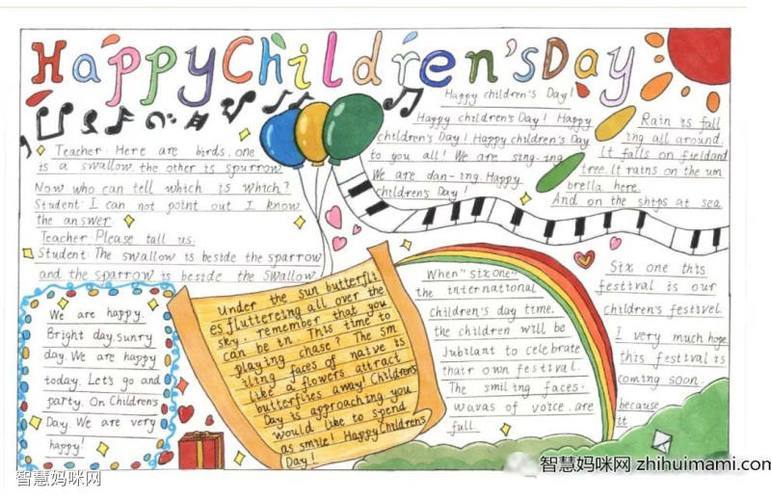 Happy Children'sDay
Teacher. Here are birds. one
is a swallow. the other is spurrow
Now who can tell which is which?
Student I can not point out I know
the answer
Teacher Please tall us.
Student The swallow is beside the sparrow
and the sparrow is beside the swallow
Happy children's Day!
Happy children's Day! Happy
children's Day! Happy children's Day
to you all! We are sing-ing
We are dan-ing. Happy
children's Day!
Rain is fall
ing all around.
It falls on fieldand
tree. It rains on the um
brella here.
And on the ships at sea
We are happy.
Bright day. sunry
day. We are happy
today. Let's go and
party. On Children's
Day. We are very
happy!
Under the sun butterfli
es fluttereing all over the
sky. remember that you
can be in. This time to
playing chase? The sm
iling faces of native is
like a flowers attract
butterflies away! Childrens
Day is approaching you
would like to spend
as smile! HappyChildrens
Day!
When "sixone"
the international
children's day time.
the children will be
Jubilant to celebrate
thair own festival.
The smiling faces.
wavas of voice. are
full.
Six one this
festival is our
children's festivel.
I very much hope
this festival is
coming soon.
because
it
智慧妈咪网
智慧妈咪网 zhihuimami.com